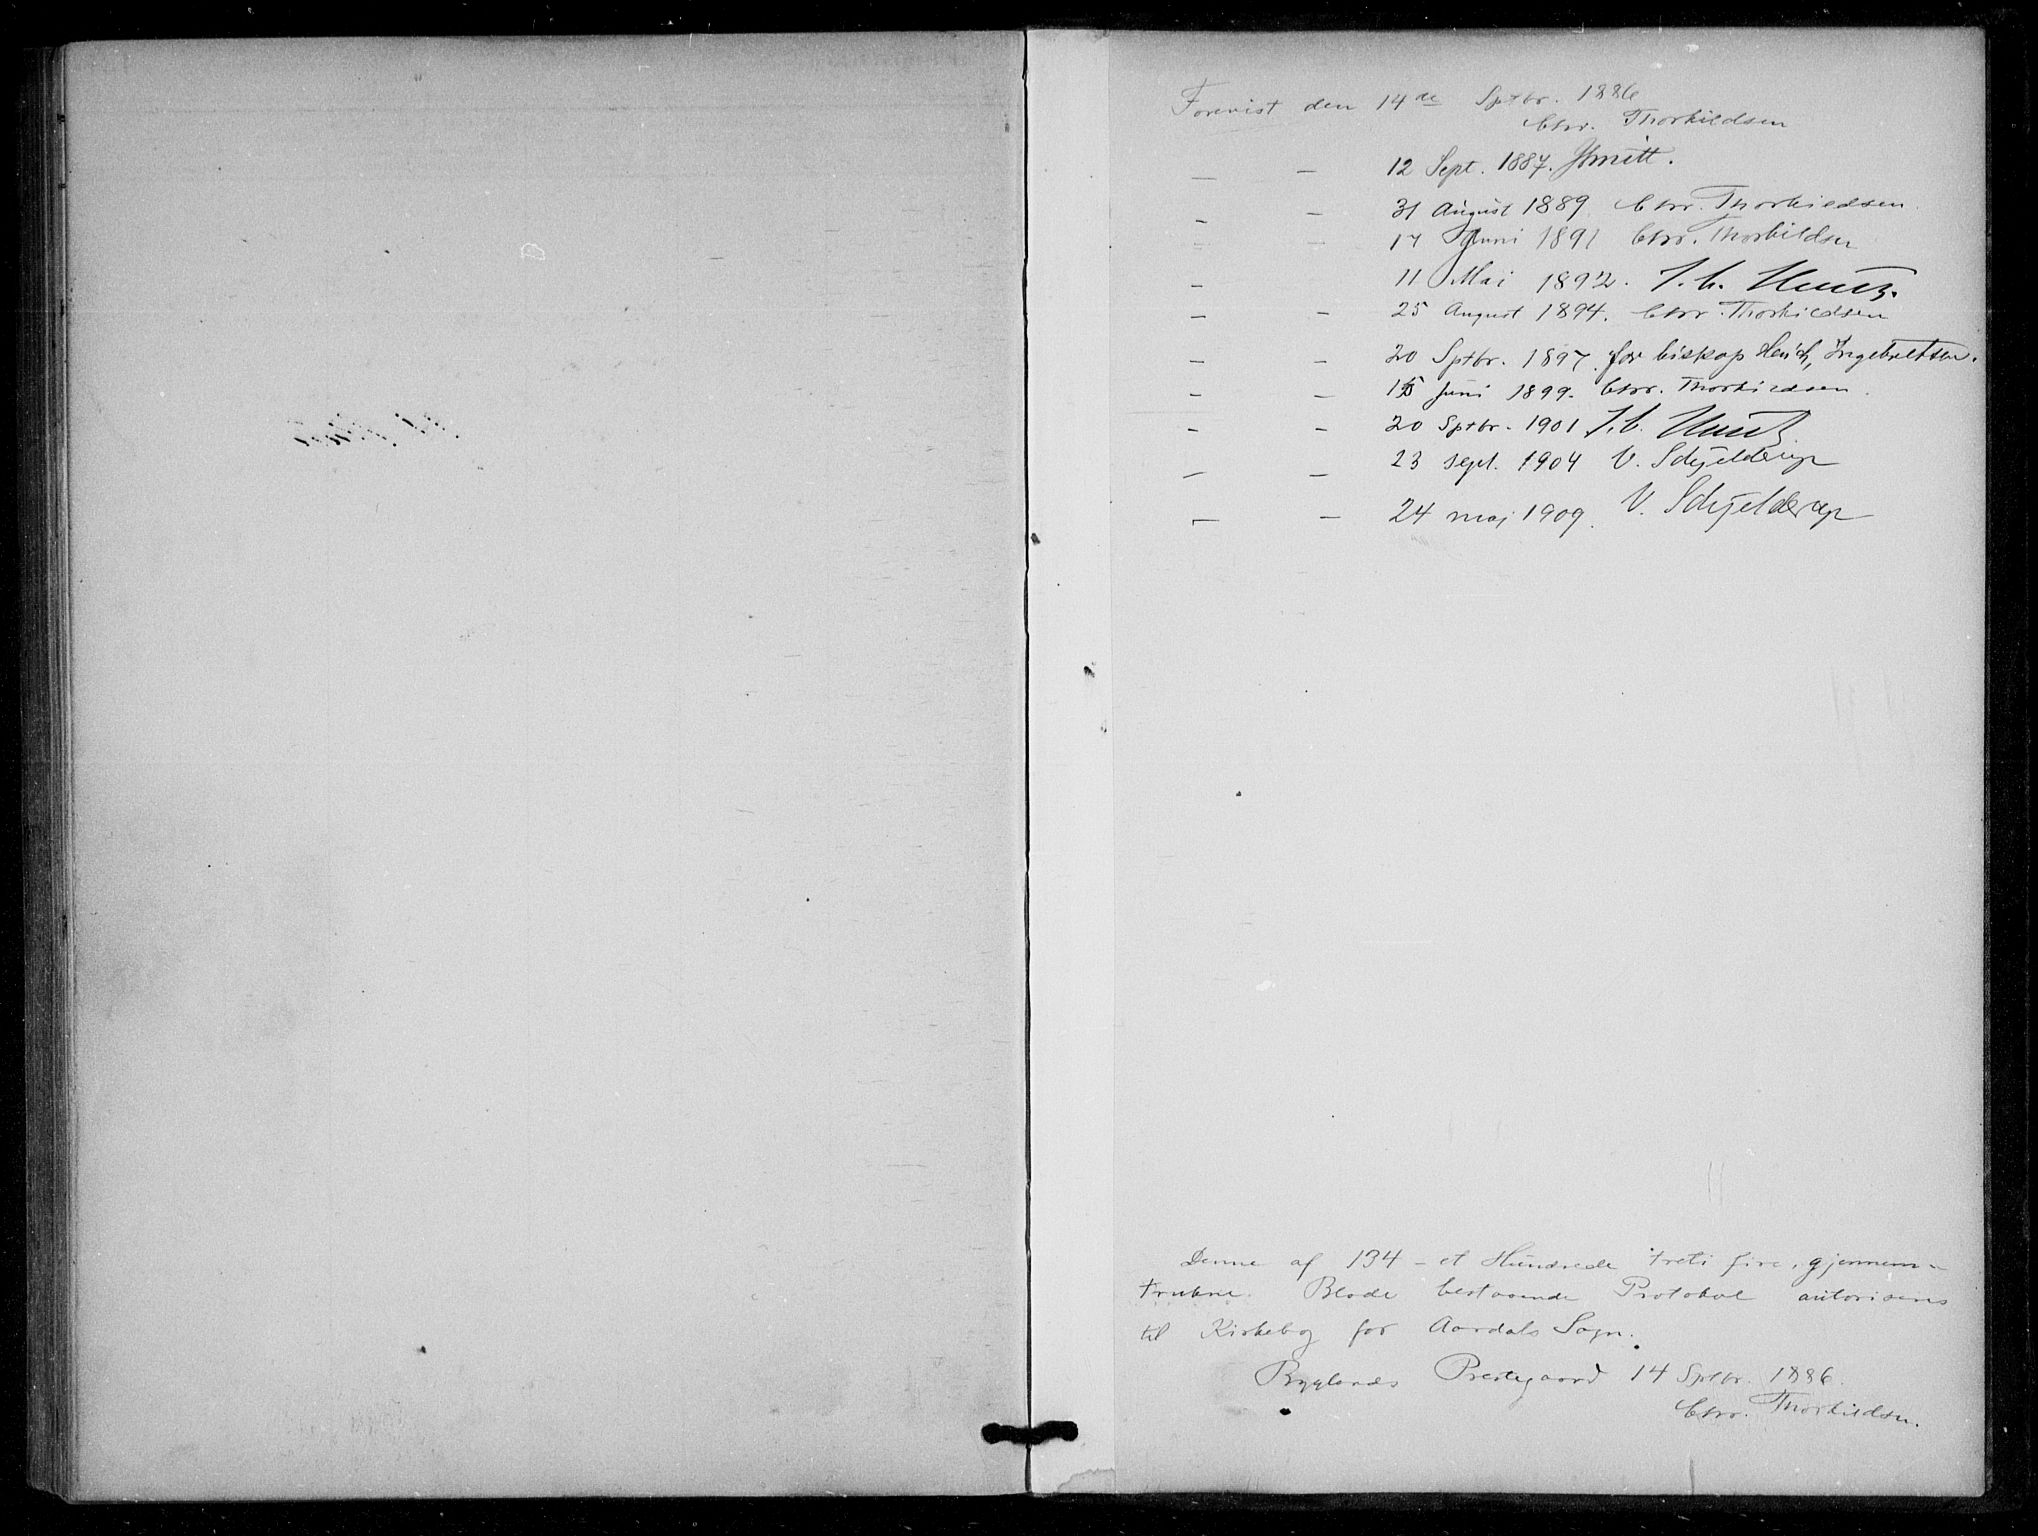 Forevist den 14de Sptbr. 1886
Chr. Thorkildsen
— — 12 Sept. 1887.
— — 31 August 1889 Chr. Thorkildsen.
— — 17 Juni 1891 Chr. Thorkildsen
— 11 Mai 1892. J. C. Heuch.
— — 25 August 1894. Chr. Thorkildsen
— — 20 Sptbr. 1897. for biskop Heuch, Ingebretsen.
— — 15 Juni 1899. Chr. Thorkildsen.
— — 20 Sptbr. 1901 J. C. Heuch
— — 23 sept. 1904 V. Schjelderup
— — 24 maj 1909. V. Schjelderup
Denne af 134 - et Hundrede treti fire, gjennem-
trukne Blade bestaaende Protokol autoriseres
til Kirkebog for Aardals Sogn.
Byglands Prestegaard 14 Sptbr. 1886.
Chr. Thorkildsen.